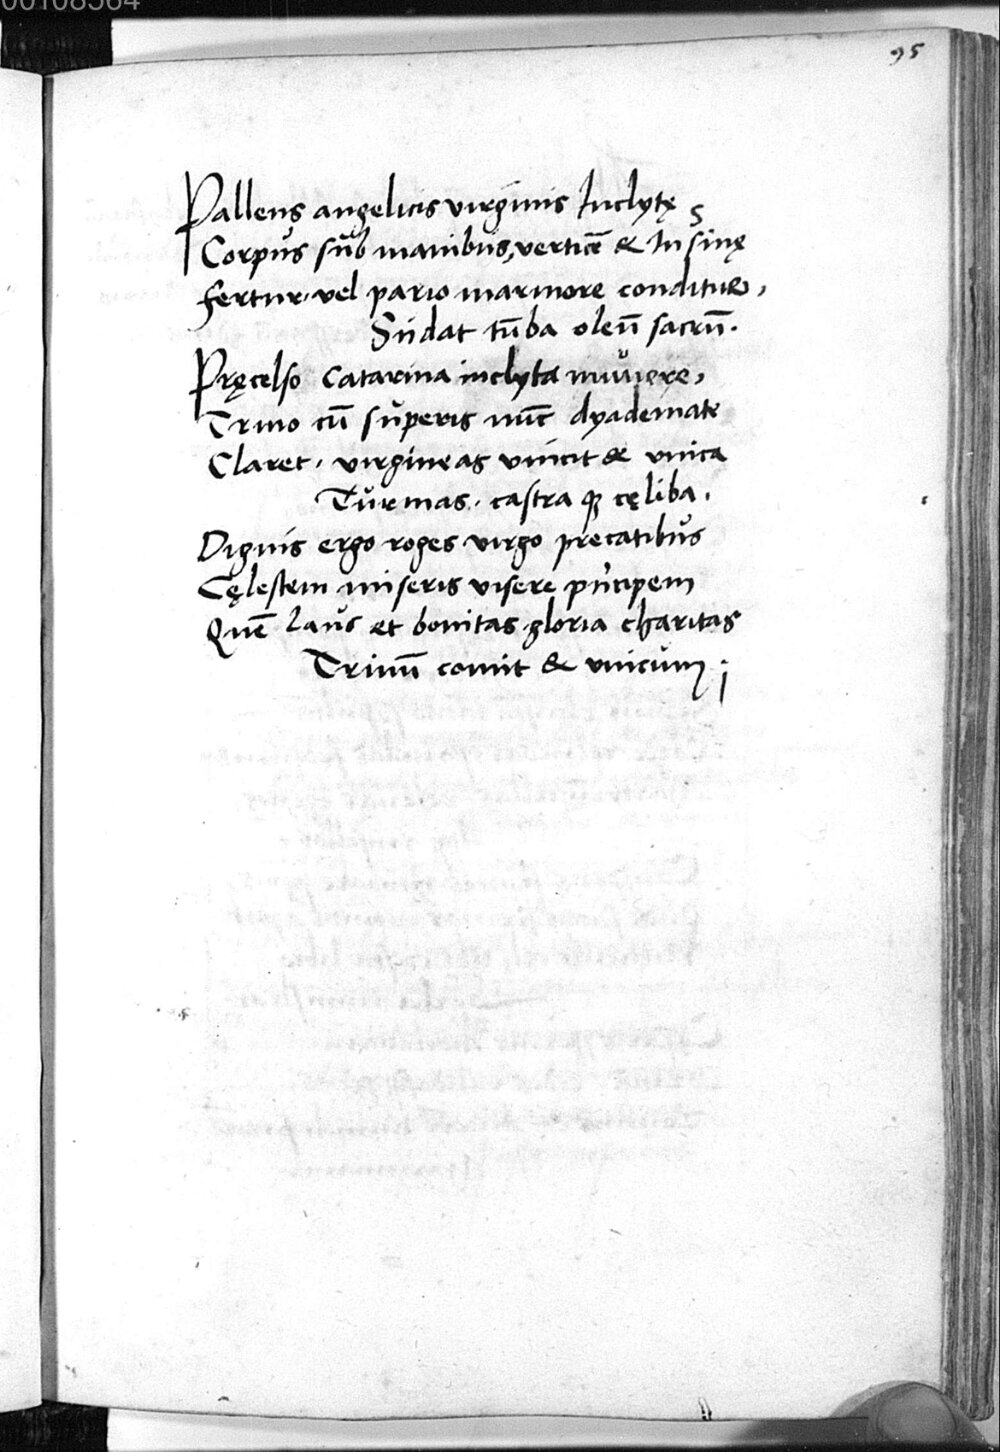 00108564
95
Pallens angelicis virginis Inclytę
Corpus sub manibus, verticē & In sinę
fertur, vel pario marmore conditur,
Sudat tūba oleū sacrū.
Pręcelso Catarina inclyta munere,
Trino cū superis nūc dyademate
Claret, virgineas vincit & vnica
Turmas, castra qꝫ cęliba.
Dignis ergo roges virgo precatibus
Cęlestem miseris visere prīcipem
Quē laus et bonitas gloria charitas
Trinū comit & vnicum;